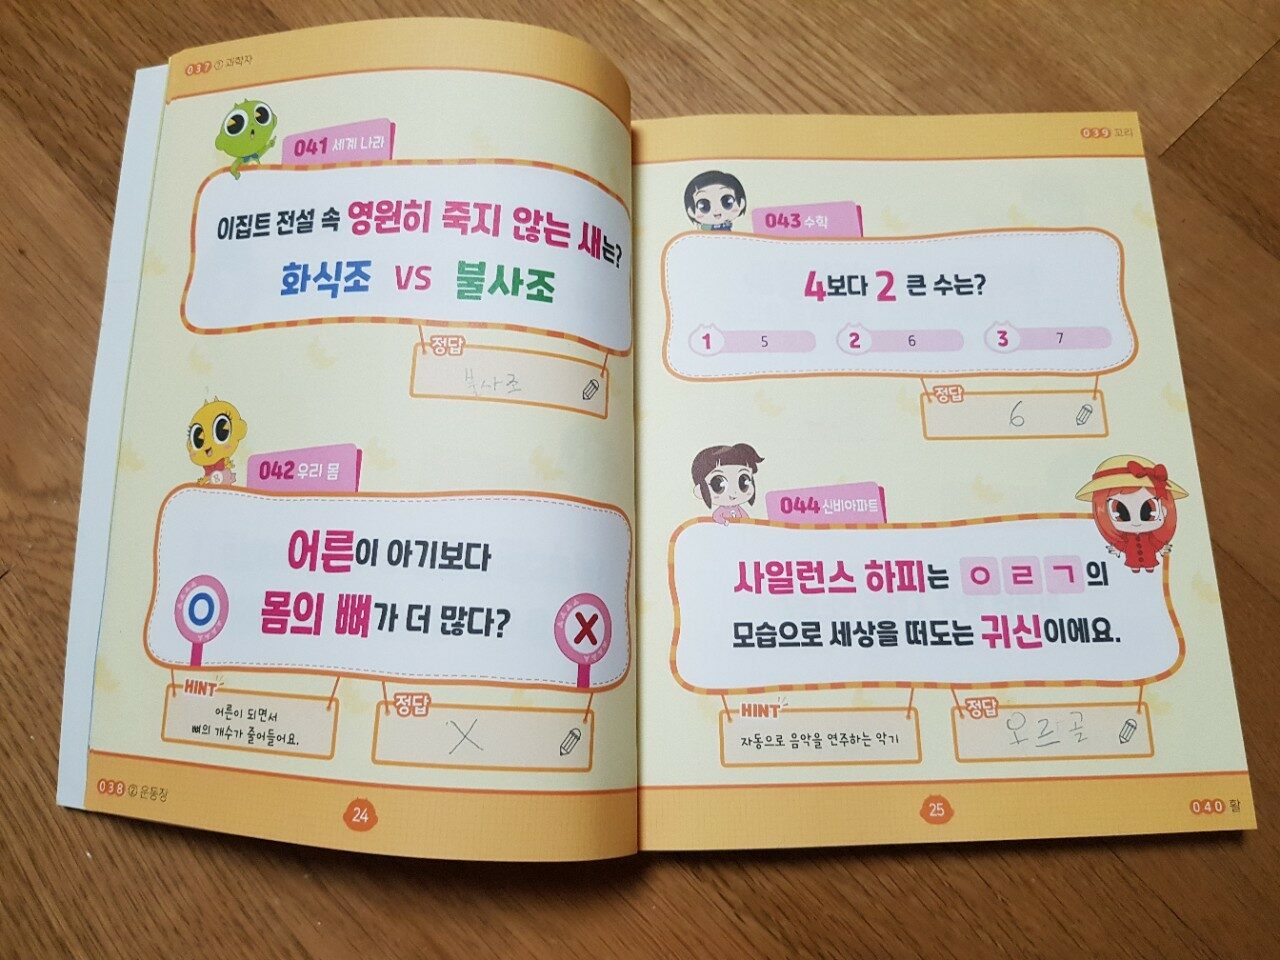 037 ① 과학자
041 세계 나라
이집트 전설 속 영원히 죽지 않는 새는?
화식조 VS 불사조
정답
불사조
042 우리 몸
어른이 아기보다
몸의 뼈가 더 많다?
O
X
HINT
어른이 되면서
뼈의 개수가 줄어들어요.
정답
X
038 ② 운동장
24
039 꼬리
043 수학
4보다 2 큰 수는?
1 5 2 6 3 7
정답
6
044 신비아파트
사일런스 하피는 ㅇ ㄹ ㄱ의
모습으로 세상을 떠도는 귀신이에요.
HINT
자동으로 음악을 연주하는 악기
정답
오르골
25
040 활